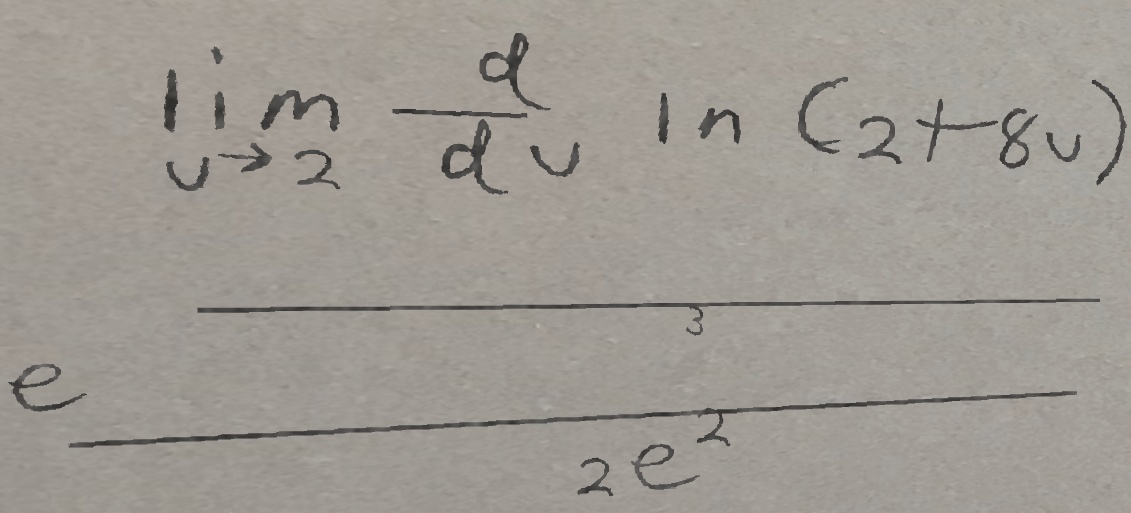 \frac{e^{\frac{\lim_{v \to 2} \frac{d}{dv} \ln(2+8v)}{3}}}{2e^2}